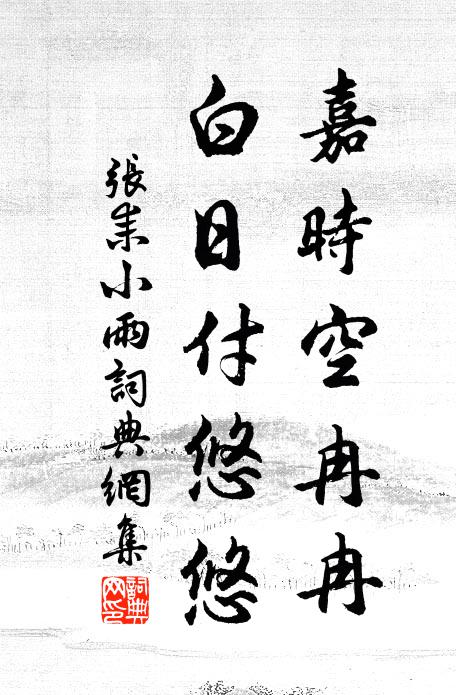 嘉時空冉冉
白日付悠悠
張耒小雨詞典網集
詞典网印